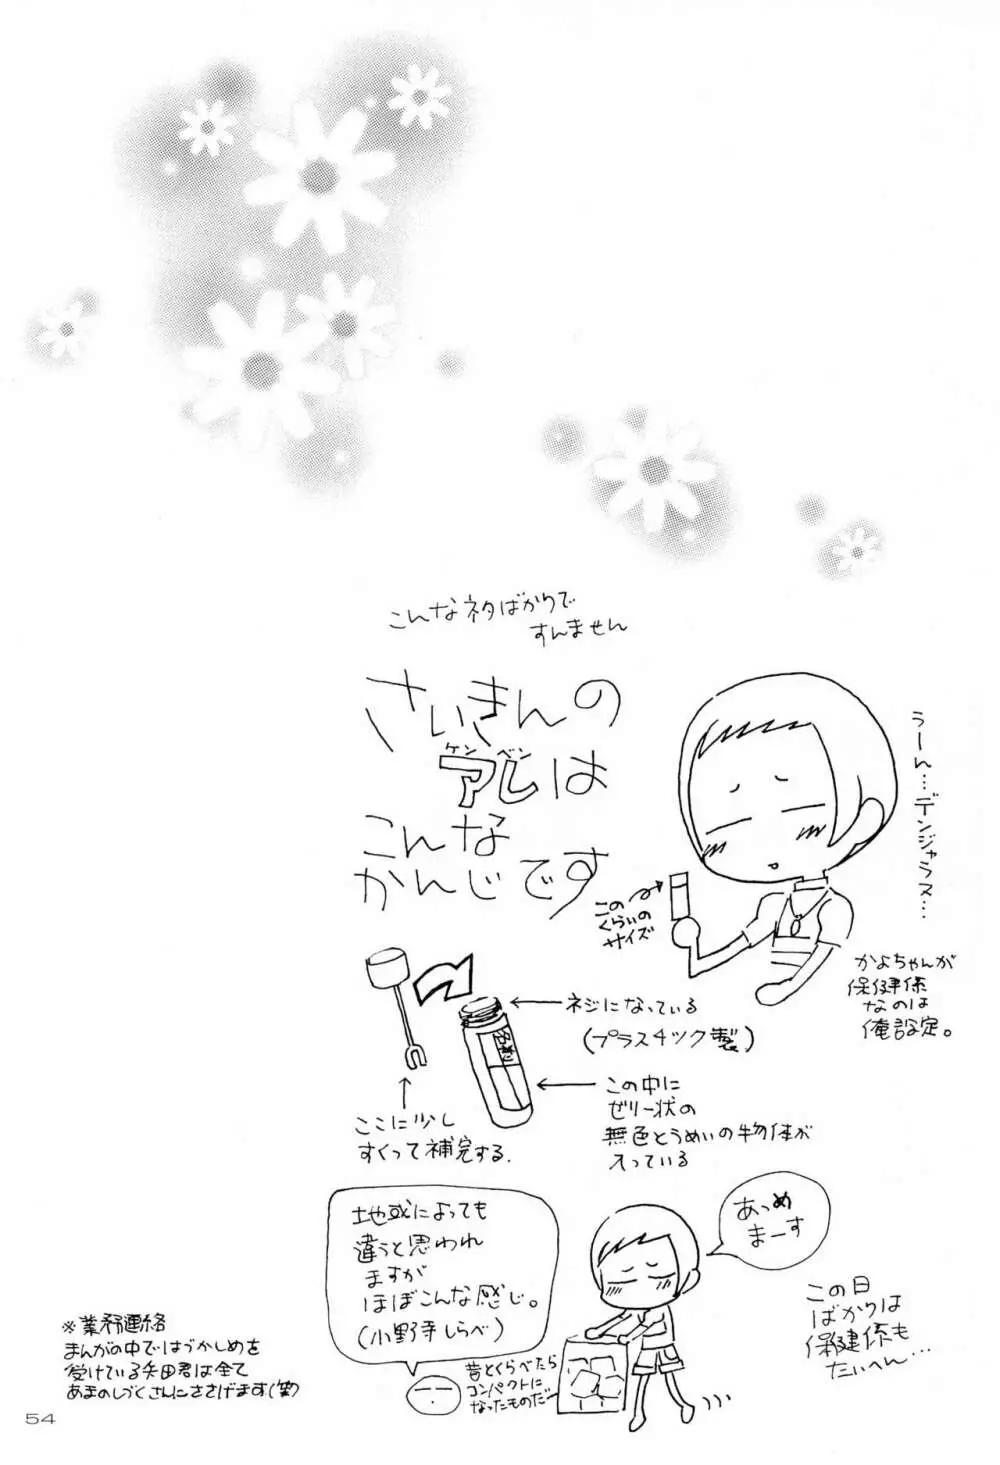 こんなネタばかりで
すんません
さいきんの
ケンベン
アレは
こんな
かんじです
うーん…デンジャラス…
この
くらいの
サイズ
かよちゃんが
保健係
なのは
俺設定。
ネジになっている
(プラスチック製)
この中に
ゼリー状の
無色とうめいの物体が
入っている
ここに少し
すくって補完する.
地域によっても
違うと思われ
ますが
ほぼこんな感じ。
(小野寺しらべ)
あつめ
まーす
この日
ばかりは
保健係も
たいへん…
昔とくらべたら
コンパクトに
なったものだ
※業務連絡
まんがの中ではづかしめを
受けている矢田君は全て
あまのしづくさんにささげます(笑)
54